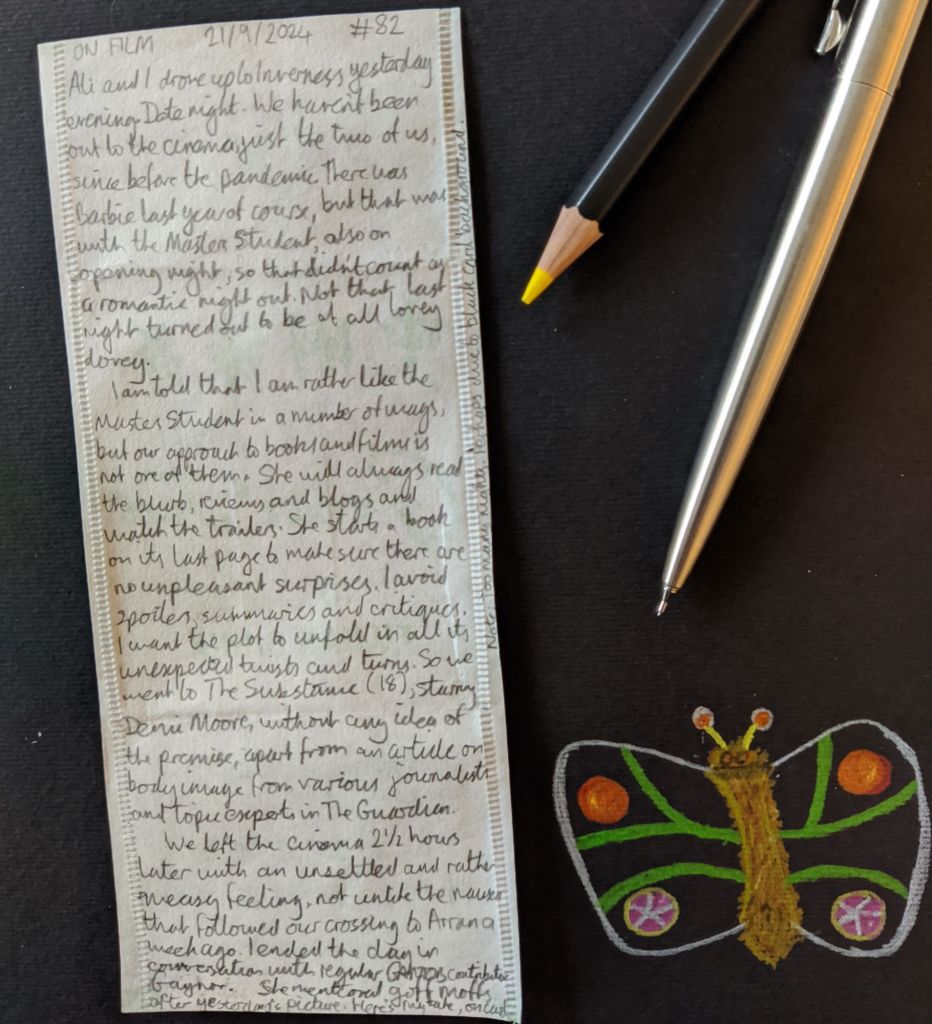 ON FILM 21/9/2024 #82
Ali and I drove up to Inverness yesterday
evening. Date night. We haven't been
out to the cinema, just the two of us,
since before the pandemic. There was
Barbie last year of course, but that was
with the Master Student, also on
opening night, so that didn't count as
a romantic night out. Not that last
night turned out to be at all lovey
dovey.
I am told that I am rather like the
Master Student in a number of ways,
but our approach to books and films is
not one of them. She will always read
the blurb, reviews and blogs and
watch the trailers. She starts a book
on its last page to make sure there are
no unpleasant surprises. I avoid
spoilers, summaries and critiques.
I want the plot to unfold in all its
unexpected twists and turns. So we
went to The Substance (18), starring
Demi Moore, without any idea of
the premise, apart from an article on
body image from various journalists
and topic experts in The Guardian.
We left the cinema 2½ hours
later with an unsettled and rather
uneasy feeling, not unlike the nausea
that followed our crossing to Arran a
week ago. I ended the day in
conversation with regular contributor
Gaynor. She mentioned goth moths
after yesterday's picture. Here's my take, on
Note: Too many nights, perhaps due to black card background.